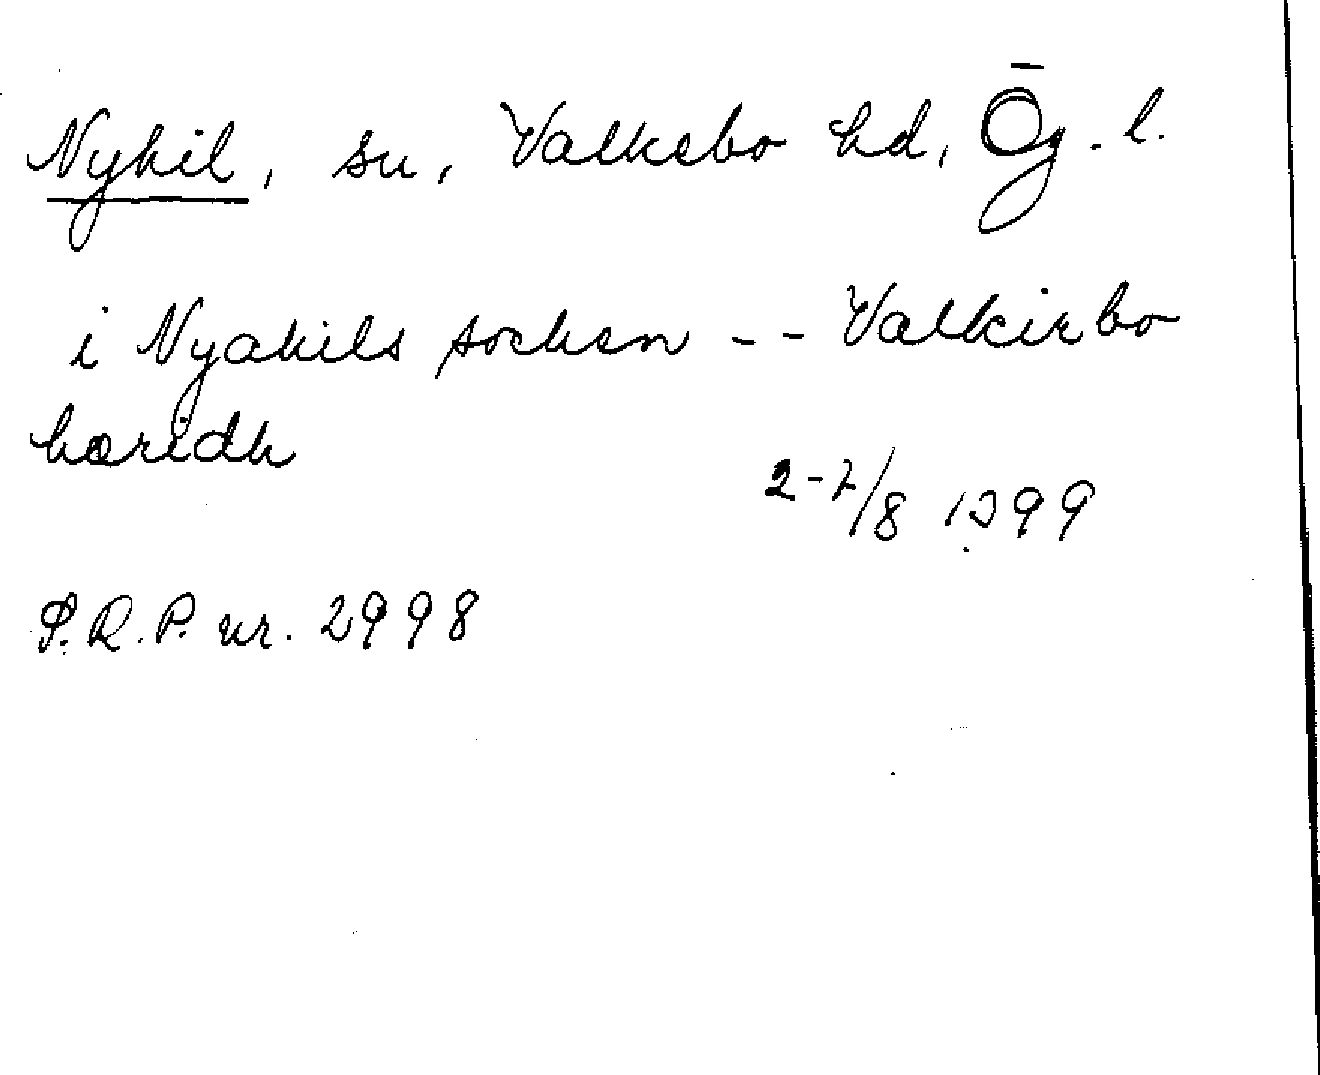 Nykil, sn, Valkebo hd, Ög. l.
i Nyakils sochen -- Valkirbo
hæridh
2-7/8 1399
S.R.P. nr. 2998